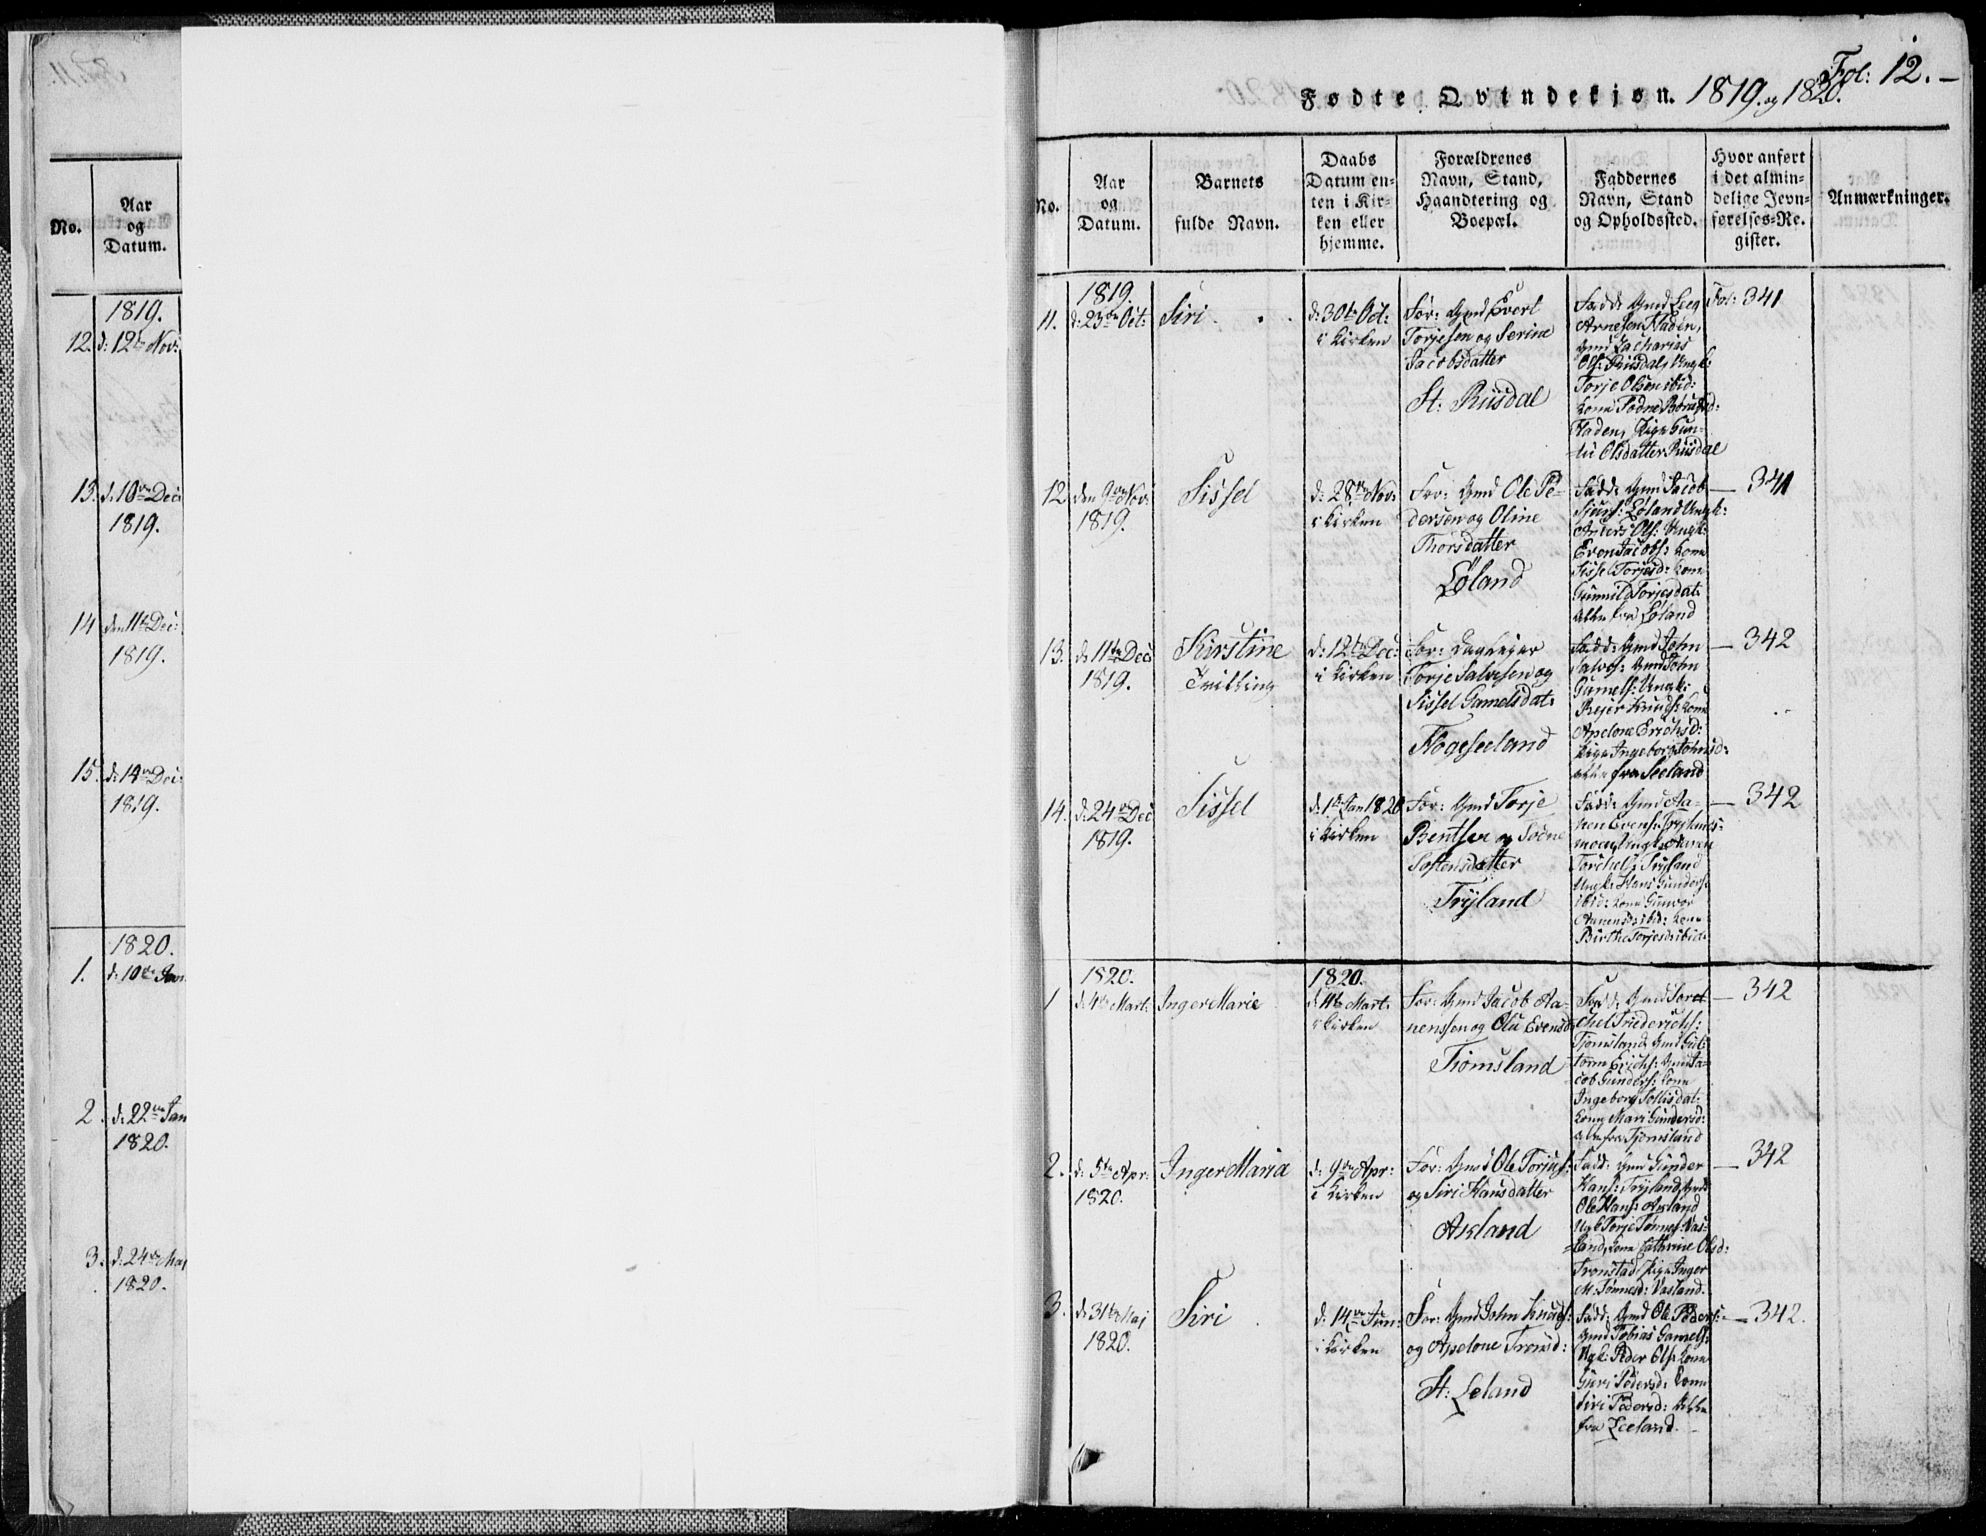 No.
Aar
og
Datum.
1819.
12. d: 12te Nov:
13. d: 10de Dec:
1819.
14 den 11te Dec:
1819.
15. d: 14de Dec:
1819.
1820.
1. d: 10de Jan.
2. d: 22de Jan
1820.
3. d: 24de Maj
1820.
Fol: 12.
Fødte Qvindekjøn. 1819. og 1820.
No.
Aar
og
Datum.
Barnets
fulde Navn.
Daabs
Datum en-
ten i Kir-
ken eller
hjemme.
Forældrenes
Navn, Stand,
Haandtering og
Boepæl.
Faddernes
Navn, Stand
og Opholdssted.
Hvor anført
i det almin-
delige Jevn-
førelses-Re-
gister.
Anmærkninger.
1819.
11. d: 23de Oct:
Siri
d: 30te Oct:
i Kirken
For: Gmd Evert
Torjesen og Serine
Jacobsdatter
St: Risdal
Fadd: Gmd Leeg
Arnesen Fladen,
Gmd Zacharias
Ols: Risdal, Ungk:
Torje Olsen ibid:
Kone Todne
Fladen, Pige Gun-
Olsdatter Risdal
Fol: 341
12 den 9de Nov:
1819.
Sissel
d: 28de Nov:
i Kirken
For: Gmd Ole Pe-
dersen og Oline
Thorsdatter
Løland
Fadd: Gmd Jacob
Sjurs: Løland Ungk:
Anders Ols: Ungk:
Even Jacobs: Kone
Sissel Torjesd: Kone
Gunnild Torjesdat:
alle fra Løland
341
13. d: 11te Dec:
1819.
Kirstine
Tvilling
d: 12te Dec:
i Kirken
For: Huusleier
Torje Salvesen og
Sissel Gamelsdat:
Flogeseeland
Fadd: Gmd John
Salves: Gmd John
Gamels: Ungk:
Rejer Knuds: Kone
Apelone Erichsd:
Pige Ingeborg Johnsd:
alle fra Seeland
342
14. d: 24de Dec
1819.
Sissel
d: 1te Jan 1820
i Kirken
For: Gmd Torje
Bentsen og Todne
Toftensdatter
Trÿland
Fadd: Gmd Aa-
nen Evens:
moen, Ungk: Aanen
Torchels: Trÿland
Ungk: Hans Gunders:
ibid: Kone Gunvor
Aanensd: ibid: Kone
Birthe Torjesd: ibid:
342
1820.
1 d: 4de Mart:
Inger Marie
1820.
d: 11te Mart:
i Kirken
For: Gmd Jacob Aa-
nenssen og Olu Evensd:
Tiomsland
Fadd: Gmd Torc-
chel Friederichs:
Tjomsland, Gmd Gut-
torm Erichs: Gmd Ja-
cob Gunders: Kone
Ingeborg Tollisdat:
Kone Mari Gundersd:
alle fra Tjomsland
342
2. d: 5te Apr:
1820.
Inger Maria
d: 9de Apr:
i Kirken
For: Gmd Ole Torjus:
og Siri Hansdatter
Askland
Fadd: Gmd Gunder
Hans: Trÿland, Gmd
Ole Hans: Askland
Ugk Torje Tønnes: Vas-
land, Kone Cathrine Olsd:
Tronstad, Pige Inger
M. Tønnesd: Vasland.
342
3. d: 31te Maj
1820.
Siri
d: 14de Jun:
i Kirken
For: Gmd John Knuds:
og Apelone Tronsd:
St: Leland
Fadd: Gmd Ole Peders:
Gmd Tobias Gamels:
Ugk: Peder Ols: Kone
Guri Pedersd: Kone
Siri Pedersd: Alle
fra Leeland.
342.